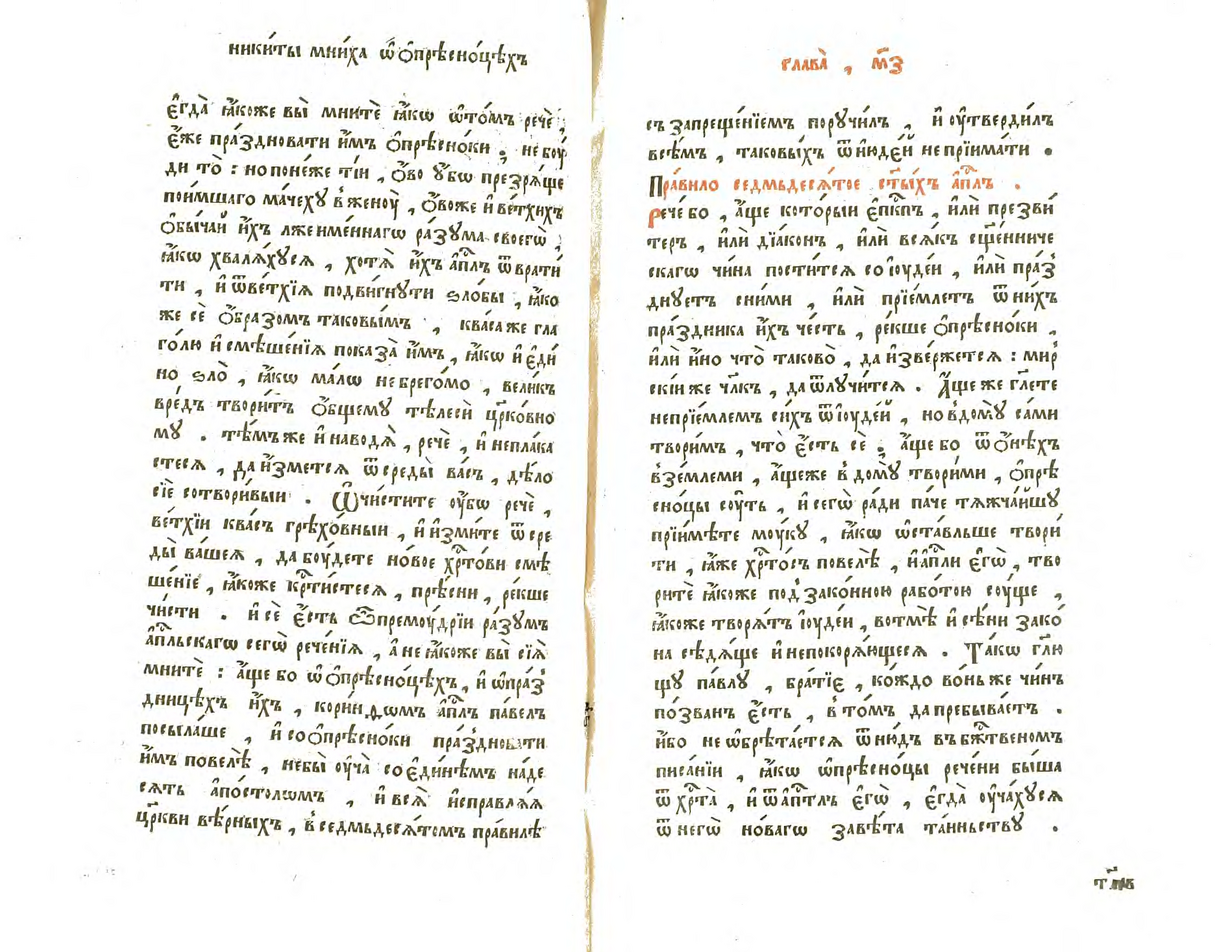 никѝты мни́ха ѡ҆ ѻ҆прѣсно́цѣхъ
є҆гда̀ ꙗ҆́коже вы̀ мнитѐ ꙗ҆́кѡ ѡ҆то́мъ речѐ ;
є҆́же пра́здновати и҆̀мъ ѻ҆прѣсно́ки ; не бꙋ́
ди то̀ : но поне́же ті́и , ѻ҆́во ᲂу҆́бѡ презрѧ́ще
пои́мшаго ма́чехꙋ в̾женоу̀ , ѻ҆́воже и҆ ве́тхихъ
ѻ҆бы́чаи и҆́хъ лжеиме́ннагѡ ра́зꙋма своегѡ̀ ,
ꙗ҆́кѡ хвалѧ́хꙋсѧ , хотѧ̀ и҆́хъ а҆пⷭ҇лъ ѿврати́
ти , и҆ ѿве́тхїѧ подви́гнꙋти ѕло́бы , ꙗ҆́ко
же сѐ ѻ҆́бразомъ таковы́мъ , ква́са же гла
го́лю и҆ смѣше́нїѧ показа̀ и҆̀мъ , ꙗ҆́кѡ и҆ є҆ди́
но ѕло̀ , ꙗ҆́кѡ ма́лѡ небрего́мо , вели́къ
вре́дъ твори́тъ ѻ҆́бщемꙋ тѣлесѝ цр҃ко́вно
мꙋ . тѣ́мъ же и҆ наводѧ̀ , речѐ , и҆ непла́ка
стесѧ , да и҆́зметсѧ ѿ среды̀ ва́съ , дѣ́ло
сїѐ сотвори́выи . Ѡ҆чи́стите оу҆́бѡ речѐ ,
ве́тхїи ква́съ грѣхо́вныи , и҆ и҆зми́те ѿ сре
ды̀ ва́шеѧ , да боу́дете но́вое хрⷭ҇то́ви смѣ
ше́нїе , ꙗ҆́коже крⷭ҇ти́стесѧ , прѣ́сни , ре́кше
чи́сти . и҆ сѐ є҆́сть ѽ премоу́дрїи ра́зꙋмъ
а҆пⷭ҇льскагѡ сегѡ̀ рече́нїѧ , а҆ не ꙗ҆́коже вы̀ сїѧ̀
мнитѐ : а҆́ще бо ѡ҆ ѻ҆прѣсно́цѣхъ , и҆ ѡ҆пра́з̾
дницѣхъ и҆́хъ , кори́нѳѡмъ а҆пⷭ҇лъ па́велъ
посыла́ше , и҆ со ѻ҆прѣсно́ки пра́здновати
и҆̀мъ повелѣ̀ , не бы̀ оу҆ча̀ соедине́мъ на де
сѧть а҆по́столѡмъ , и҆ всѧ̀ и҆справлѧ́ѧ
цр҃кви вѣ́рныхъ , в̾ седмьдесѧ́томъ пра́вилѣ
глава̀ , м҃з
съ запреще́нїемъ порꙋчи́лъ , и҆ оу҆тверди́лъ
всѣ́мъ , таковы́хъ ѿ и҆юде́й не прїима́ти .
Пра́вило седмьдесѧ́тое ст҃ы́хъ а҆пⷭ҇лъ .
рече́ бо , а҆́ще кото́рыи є҆пⷭ҇кпъ , и҆лѝ презви́
теръ , и҆лѝ дїа́конъ , и҆лѝ всѧ́къ сщ҃е́нниче
скагѡ чи́на пости́тсѧ со іоуде́и , и҆лѝ пра́з̾
днꙋетъ сни́ми , и҆лѝ прїе́млетъ ѿ ни́хъ
пра́здника и҆́хъ че́сть , ре́кше ѻ҆прѣсно́ки ,
и҆лѝ и҆́но что̀ таково̀ , да и҆зве́ржетсѧ : мир̾
скі́и же чл҃къ , да ѿлꙋчи́тсѧ . А҆́ще же гл҃ете
непрїе́млемъ си́хъ ѿ іоуде́й , но в дом́ꙋ са́ми
твори́мъ , что̀ є҆́сть сѐ ; а҆́ще бо ѿ ѻ҆нѣ́хъ
в̾зе́млеми , а҆́щеже в̾ домꙋ̀ твори́ми , ѻ҆прѣ
сно́цы соу́ть , и҆ сегѡ̀ ра́ди па́че тѧжча́йшꙋ
прїи́мѣте моу́кꙋ , ꙗ҆́кѡ ѡ҆ста́вльше твори́
ти , ꙗ҆̀же хрⷭ҇то́съ повелѣ̀ , и҆ а҆пⷭ҇ли є҆гѡ̀ , тво
рите̂ ꙗ҆́коже под̾ зако́нною рабо́тою соу́ще ,
ꙗ҆́коже творѧ́тъ іоуде́и , во тмѣ̀ и҆ сѣ́ни зако́
на сѣдѧ́ще и҆ непокорѧ́ющесѧ . Та́кѡ гл҃ю
щꙋ па́влꙋ , бра́тїє , ко́ждо во́ньже чи́нъ
по́званъ є҆́сть , в̾ то́мъ да пребыва́етъ .
и҆́бо не ѡ҆брѣта́етсѧ ѿню́дъ въ бж҃твеномъ
писа́нїи , ꙗ҆́кѡ ѡ҆прѣсно́цы рече́ни бы́ша
ѿ хрⷭ҇та̀ , и҆ ѿ а҆пⷭ҇тлъ є҆гѡ̀ , є҆гда̀ оу҆ча́хꙋсѧ
ѿ негѡ̀ но́вагѡ завѣ́та та́иньствꙋ .